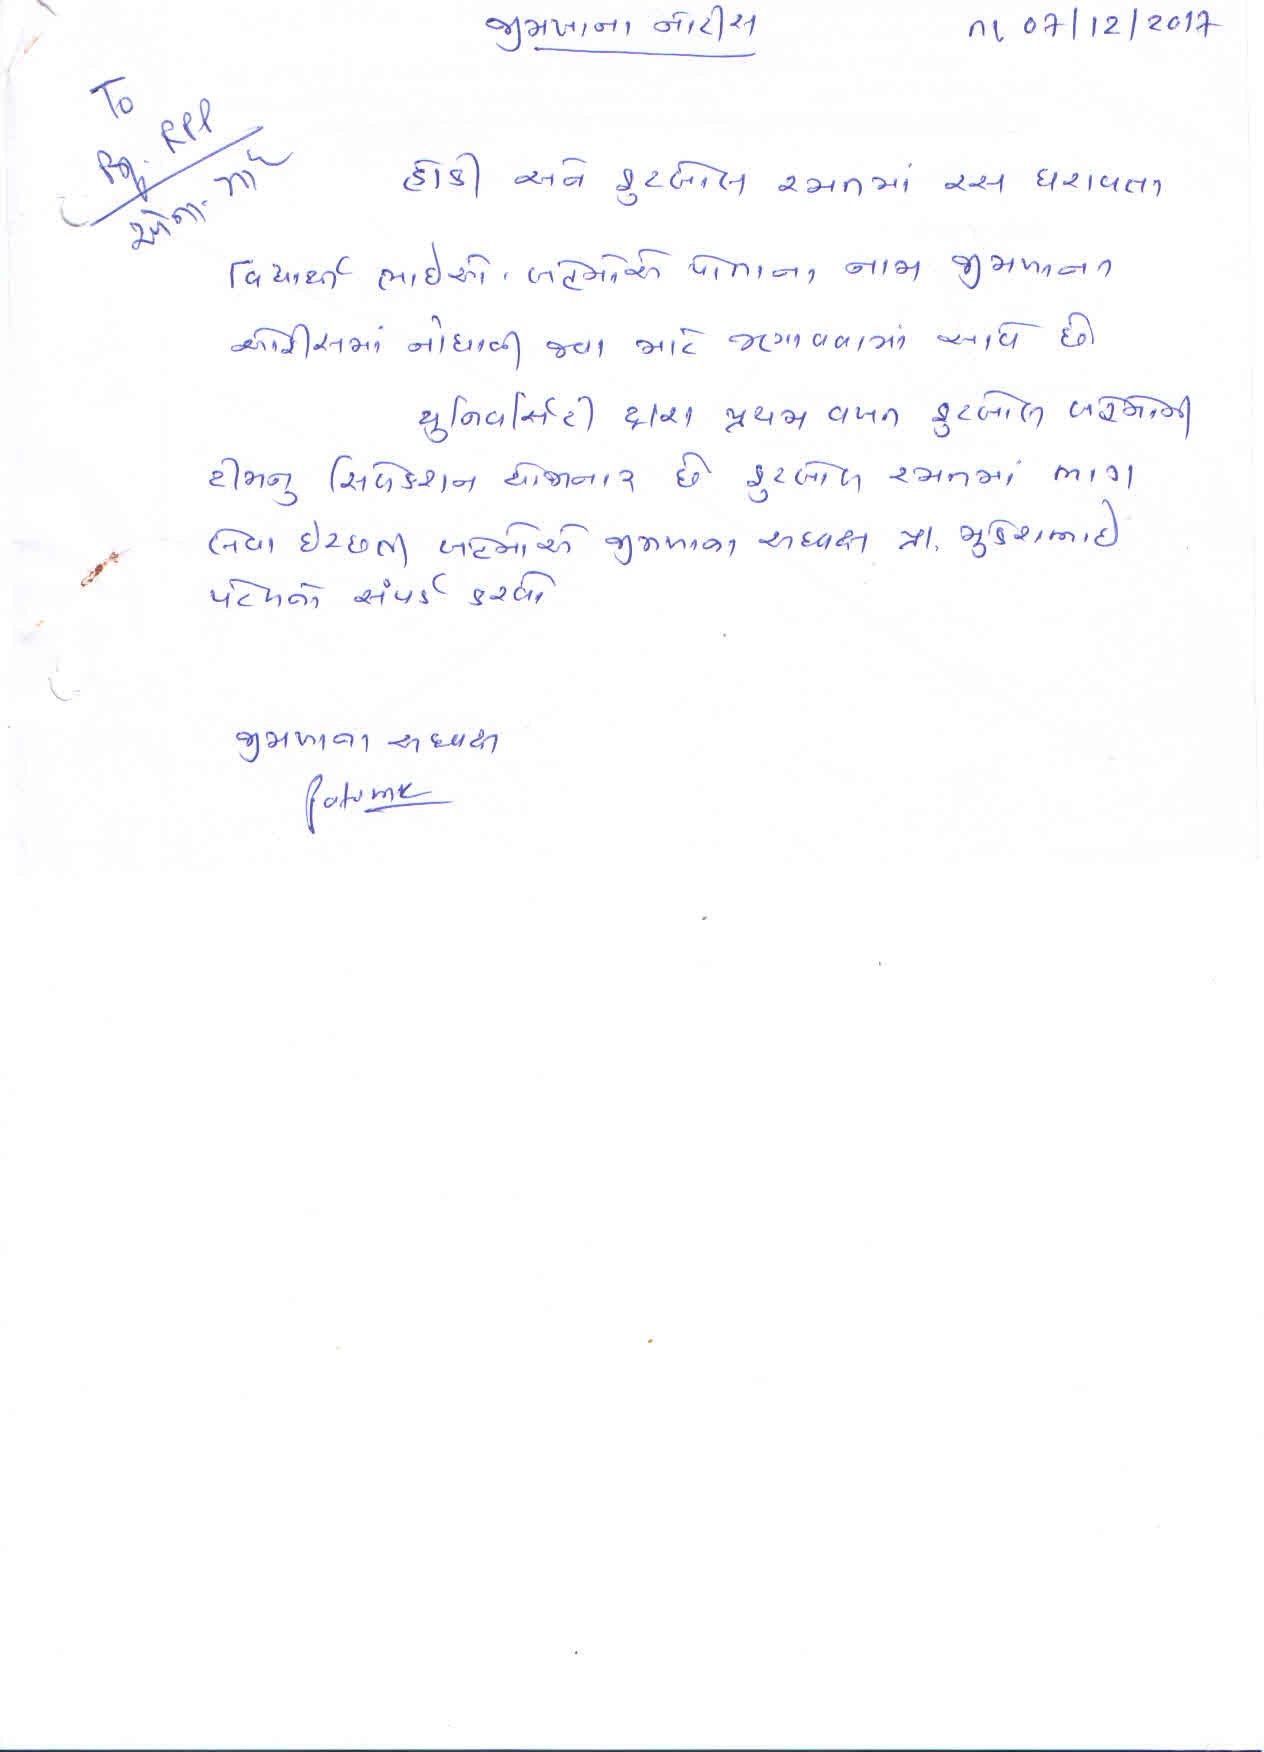 જીમખાના નોટીસ
તા 07/12/2017
To
Prof. RPP
હોકી અને ફુટબોલ રમતમાં રસ ધરાવતા
વિદ્યાર્થી ભાઈઓ, બહેનોએ પોતાના નામ જીમખાના
ઓફીસમાં નોધાવી જવા માટે જણાવવામાં આવે છે
યુનિવર્સિટી દ્વારા પ્રથમ વખત ફુટબોલ બહેનોની
ટીમનુ સિલેકશન યોજનાર છે ફુટબોલ રમતમાં ભાગ
લેવા ઈચ્છતી બહેનોએ જીમખાના અધ્યક્ષ પ્રા. મુકેશભાઈ
પટેલનો સંપર્ક કરવો
જીમખાના અધ્યક્ષ